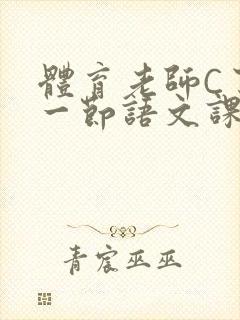 體育老師C
一節語文課
青宸巫巫